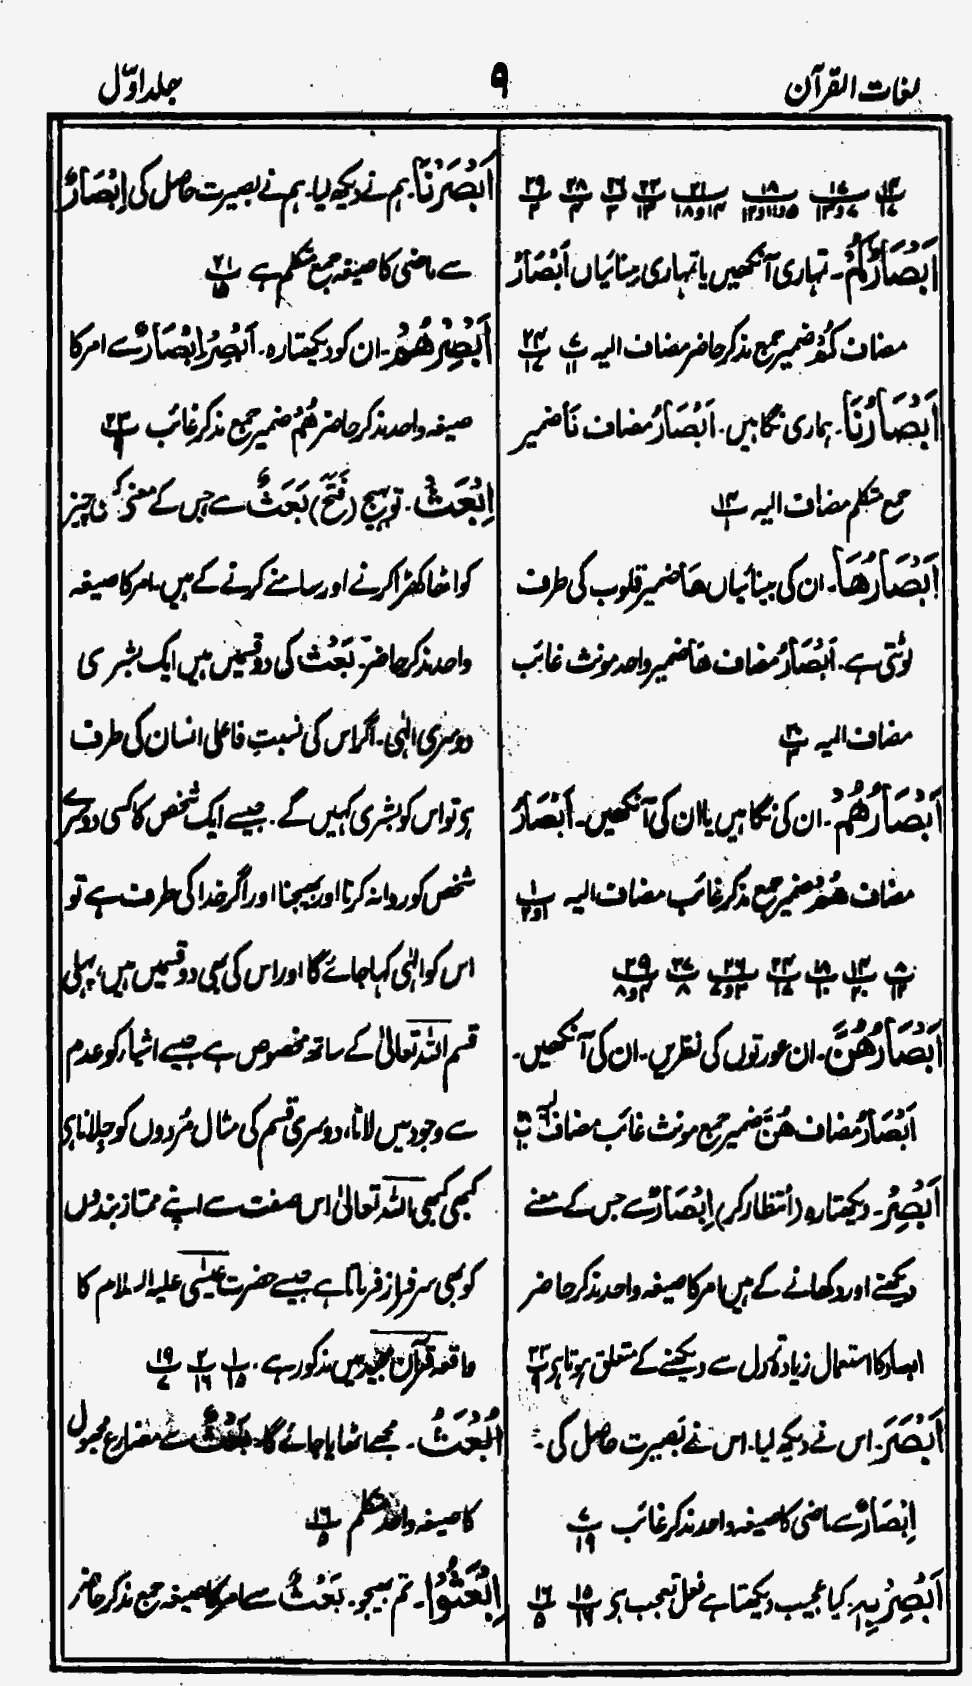 لغات القرآن
۹
جلد اوّل
۱۳/۱۷ ۱۷/۷و۱۲ ۱۸/۵و۱۱و۱۲ ۲۱/۱۴و۱۸ ۲۲/۱۳ ۲۶/۲ ۲۸/۴ ۲۹/۲
اَبْصَارُكُمْ۔ تمہاری آنکھیں یا تمہاری بینائیاں اَبْصَارُ
مضاف کُمْ ضمیر جمع مذکر حاضر مضاف الیہ ۷/۱۱ ۲۴/۱۷
اَبْصَارُنَا۔ ہماری نگاہیں۔ اَبْصَارُ مضاف نَا ضمیر
جمع متکلم مضاف الیہ ۱۴/۱
اَبْصَارُهَا۔ ان کی بینائیاں ھَا ضمیر قلوب کی طرف
لوٹتی ہے۔ اَبْصَارُ مضاف ھَا ضمیر واحد مونث غائب
مضاف الیہ ۳۰/۳
اَبْصَارُهُمْ۔ ان کی نگاہیں یا ان کی آنکھیں۔ اَبْصَارُ
مضاف ھُمْ ضمیر جمع مذکر غائب مضاف الیہ ۱/۱و۲
۸/۱۲ ۱۴/۲۰ ۱۸/۱۰ ۲۴/۱۷ ۲۶/۳و۷ ۲۷/۸ ۲۹/۴و۸
اَبْصَارُهُنَّ۔ ان عورتوں کی نظریں۔ ان کی آنکھیں۔
اَبْصَارُ مضاف ھُنَّ ضمیر جمع مونث غائب مضاف الیہ ۱۸/۱۰
اَبْصِرْ۔ دیکھتا رہ (انتظار کر) اِبْصَارٌ سے جس کے معنے
دیکھنے اور دکھانے کے ہیں امر کا صیغہ واحد مذکر حاضر
ابصار کا استعمال زیادہ تر دل سے دیکھنے کے متعلق ہوتا ہے ۲۳/۹
اَبْصَرَ۔ اس نے دیکھ لیا۔ اس نے بَصیرت حاصل کی۔
اِبْصَارٌ سے ماضی کا صیغہ واحد مذکر غائب ۷/۱۹
اَبْصِرْ بِهٖ۔ کیا عجیب دیکھتا ہے فعل تعجب ہے ۱۵/۱۶ ۱۶/۵
اَبْصَرْنَا۔ ہم نے دیکھ لیا۔ ہم نے بصیرت حاصل کی اِبْصَارٌ
سے ماضی کا صیغہ جمع متکلم ہے ۲۱/۱۵
اَبْصِرْهُمْ۔ ان کو دیکھتا رہ۔ اَبْصِرْ اِبْصَارٌ سے امر کا
صیغہ واحد مذکر حاضر ھُمْ ضمیر جمع مذکر غائب ۲۳/۹
اِبْعَثْ۔ تو بھیج (فَتَحَ) بَعَثَ سے جس کے معنی کسی چیز
کو اٹھا کھڑا کرنے اور سامنے کرنے کے ہیں۔ امر کا صیغہ
واحد مذکر حاضر۔ بَعْث کی دو قسمیں ہیں ایک بشری
دوسری الٰہی۔ اگر اس کی نسبتِ فاعلی انسان کی طرف
ہو تو اس کو بشری کہیں گے۔ جیسے ایک شخص کا کسی دوسرے
شخص کو روانہ کرنا اور بھیجنا اور اگر خدا کی طرف ہے تو
اس کو الٰہی کہا جائے گا اور اس کی بھی دو قسمیں ہیں، پہلی
قسم اللہ تعالیٰ کے ساتھ مخصوص ہے جیسے اشیاء کو عدم
سے وجود میں لانا، دوسری قسم کی مثال مُردوں کو جِلانا ہے
کبھی کبھی اللہ تعالیٰ اس صفت سے اپنے ممتاز بندوں
کو بھی سرفراز فرماتا ہے جیسے حضرت عیسٰی علیہ السلام کا
واقعہ قرآن مجید میں مذکور ہے۔ ۱/۱۵ ۲/۱۶ ۱۹/۷
اُبْعَثُ۔ مجھے اٹھایا جائے گا۔ بَعْثٌ سے مضارع مجہول
کا صیغہ واحد متکلم ۱۶/۵
اِبْعَثُوْا۔ تم بھیجو۔ بَعْثٌ سے امر کا صیغہ جمع مذکر حاضر